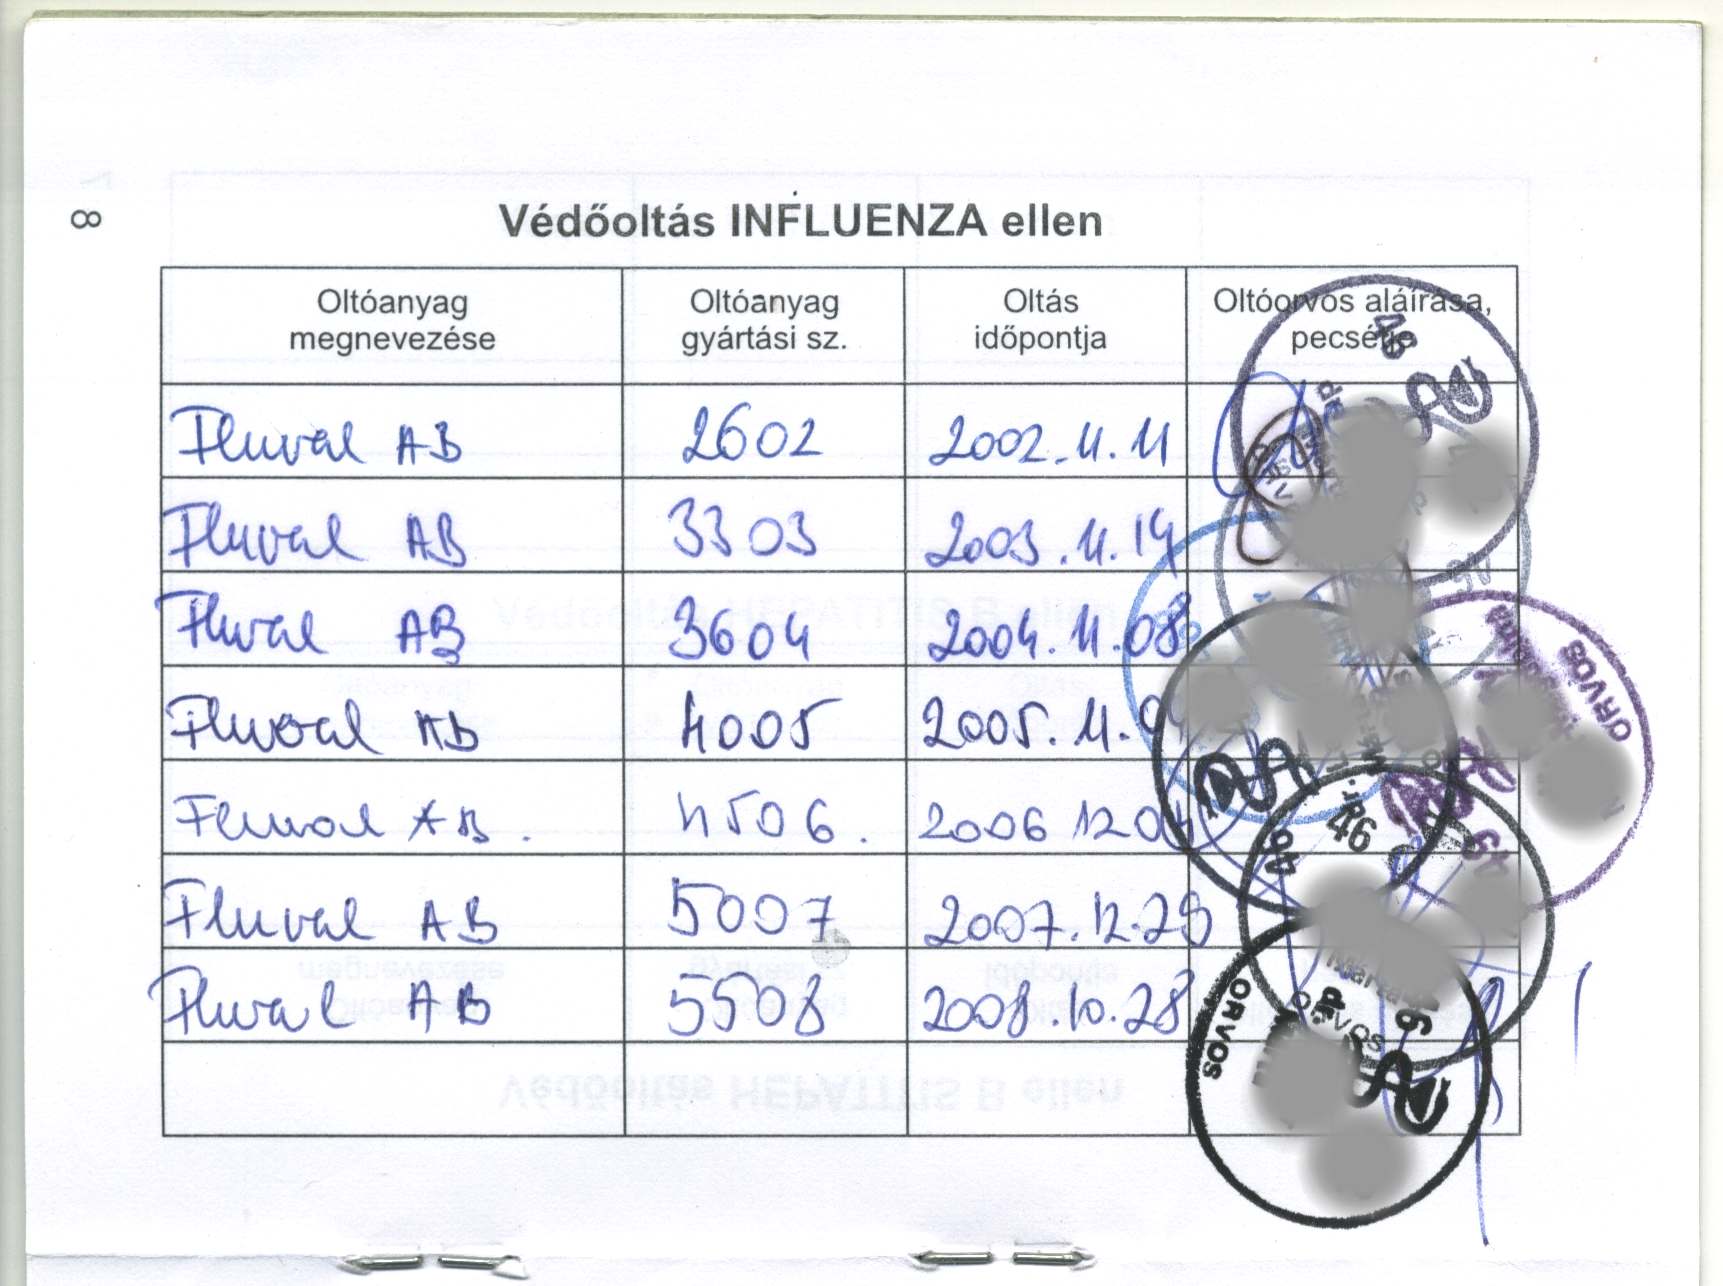 8
Védőoltás INFLUENZA ellen
Oltóanyag megnevezése
Oltóanyag gyártási sz.
Oltás időpontja
Oltóorvos aláírása, pecsétje
Fluval AB 2602 2002.11.11
Fluval AB 3303 2003.11.19
Fluval AB 3604 2004.11.08
Fluval AB 4005 2005.11.
Fluval AB. 4506. 2006 12 04
Fluval AB 5007 2007.12.29
Fluval AB 5508 2008.10.28
46
dr.
ORVOS
46
ORVOS
dr.
ORVOS